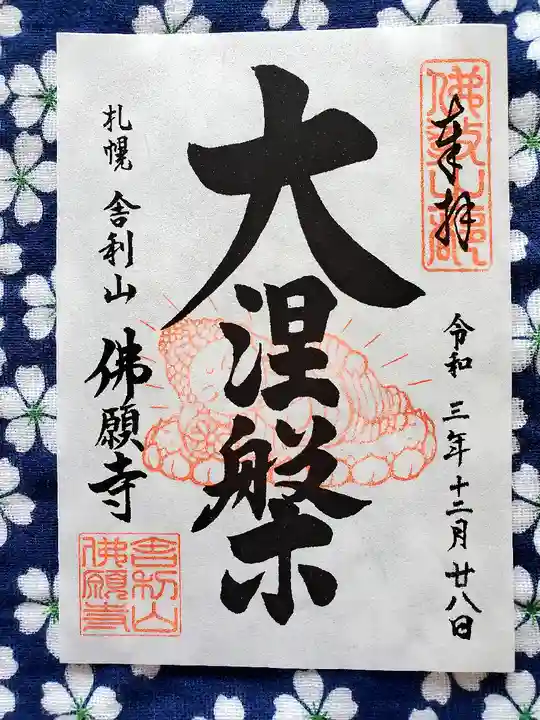 奉拝
令和三年十二月廿八日
大涅槃
札幌 舎利山
佛願寺
舎利山
佛願寺